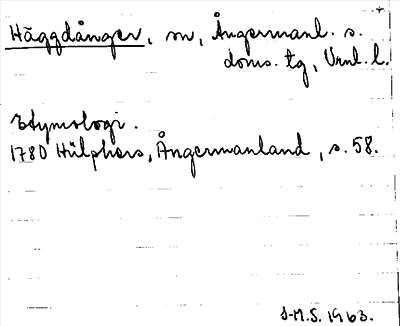 Häggdånger, m, Ångermanl. s.
doms. tg, Vrnl. l.
Etymologi.
1780 Hülphers, Ångermanland, s. 58.
S-M.S. 1963.